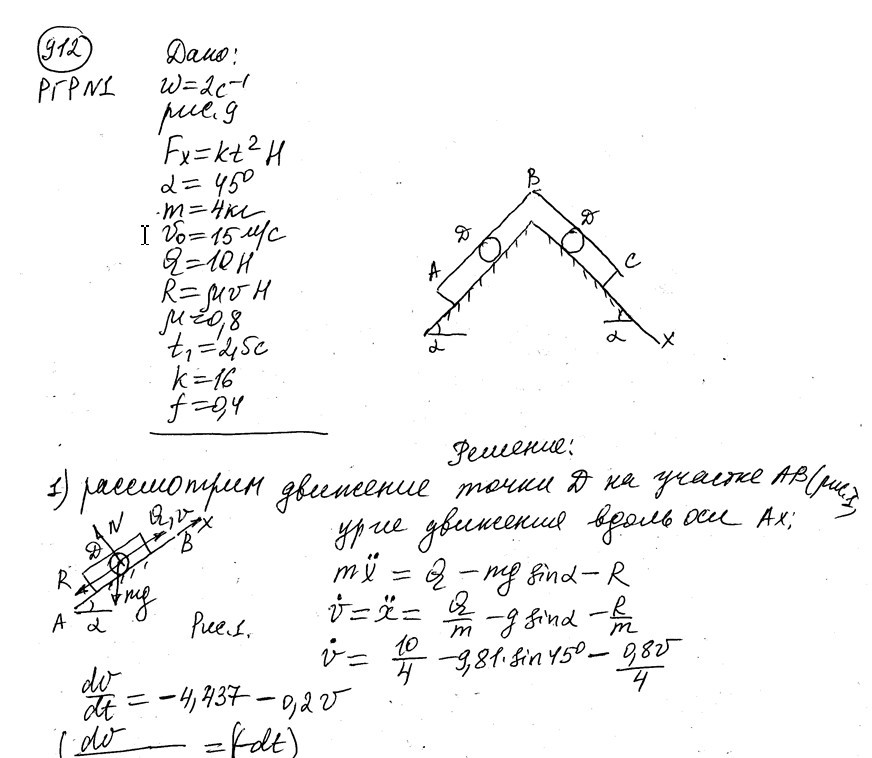 912
РГР N1
Дано:
ω = 2c⁻¹
рис. 9
Fx = kt² Н
α = 45°
m = 4кг
v₀ = 15 м/с
Q = 10 Н
R = μv Н
μ = 0,8
t₁ = 2,5с
k = 16
f = 0,4
B
D
D
A
C
α
α
X
Решение:
1) рассмотрим движение точки D на участке AB (рис.1)
ур-ие движения вдоль оси Ax;
N
Q, v
X
D
B
R
mg
A
α
Рис.1.
mẍ = Q − mg sinα − R
v̇ = ẍ = Q/m − g sinα − R/m
v̇ = 10/4 − 9,81·sin45° − 0,8v/4
dv/dt = −4,437 − 0,2v
dv
= (−dt)